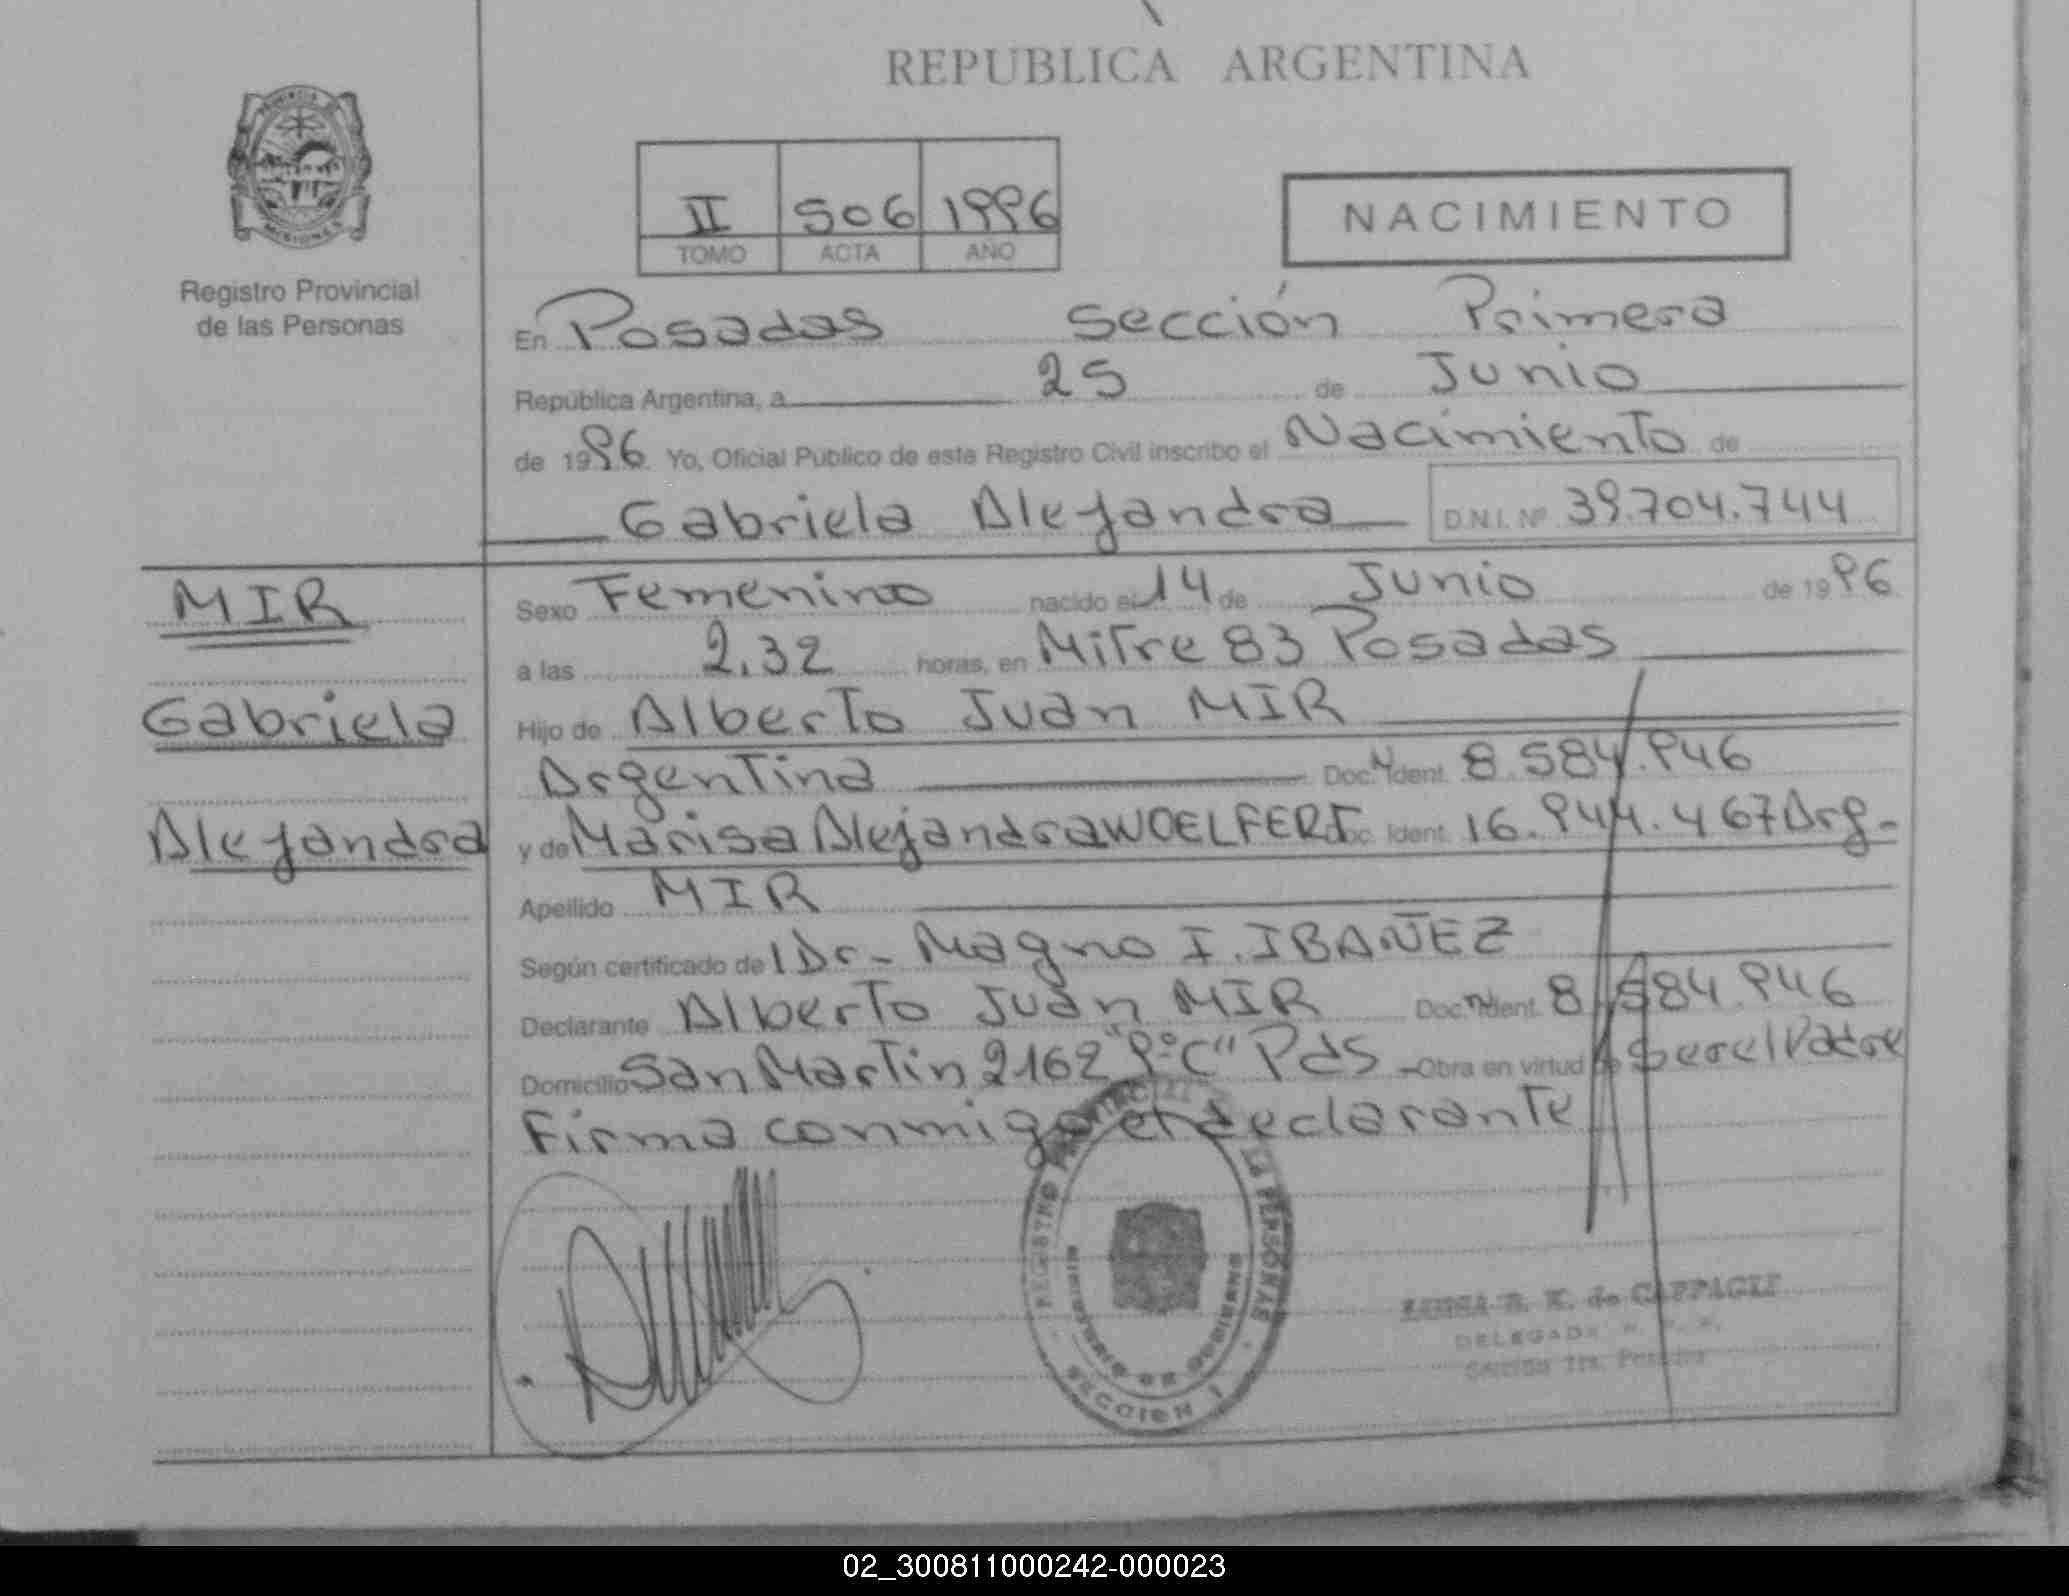 REPUBLICA ARGENTINA
PROVINCIA DE
MISIONES
Registro Provincial
de las Personas
II 506 1996
TOMO ACTA AÑO
NACIMIENTO
En Posadas Sección Primera
República Argentina, a 25 de Junio
de 1996 Yo, Oficial Público de este Registro Civil inscribo el Nacimiento de
Gabriela Alejandra D.N.I. Nº 39.704.744
MIR
Gabriela
Alejandra
Sexo Femenino nacido el 14 de Junio de 1996
a las 2.32 horas, en Mitre 83 Posadas
Hijo de Alberto Juan MIR
Argentina Doc. Ident. 8.584.946
y de Marisa Alejandra WOELFERT Doc. Ident. 16.944.467 Arg-
Apellido MIR
Según certificado del Dr- Magno I. IBAÑEZ
Declarante Alberto Juan MIR Doc. Ident. 8.584.946
Domicilio San Martin 2162 "9º C" Pds - Obra en virtud de Ser el Padre
Firma conmigo el declarante
REGISTRO PROVINCIAL DE LAS PERSONAS
MINISTERIO DE GOBIERNO
SECCION 1
DELEGADA R. P. P.
Sección 1ra. Posadas
02_300811000242-000023